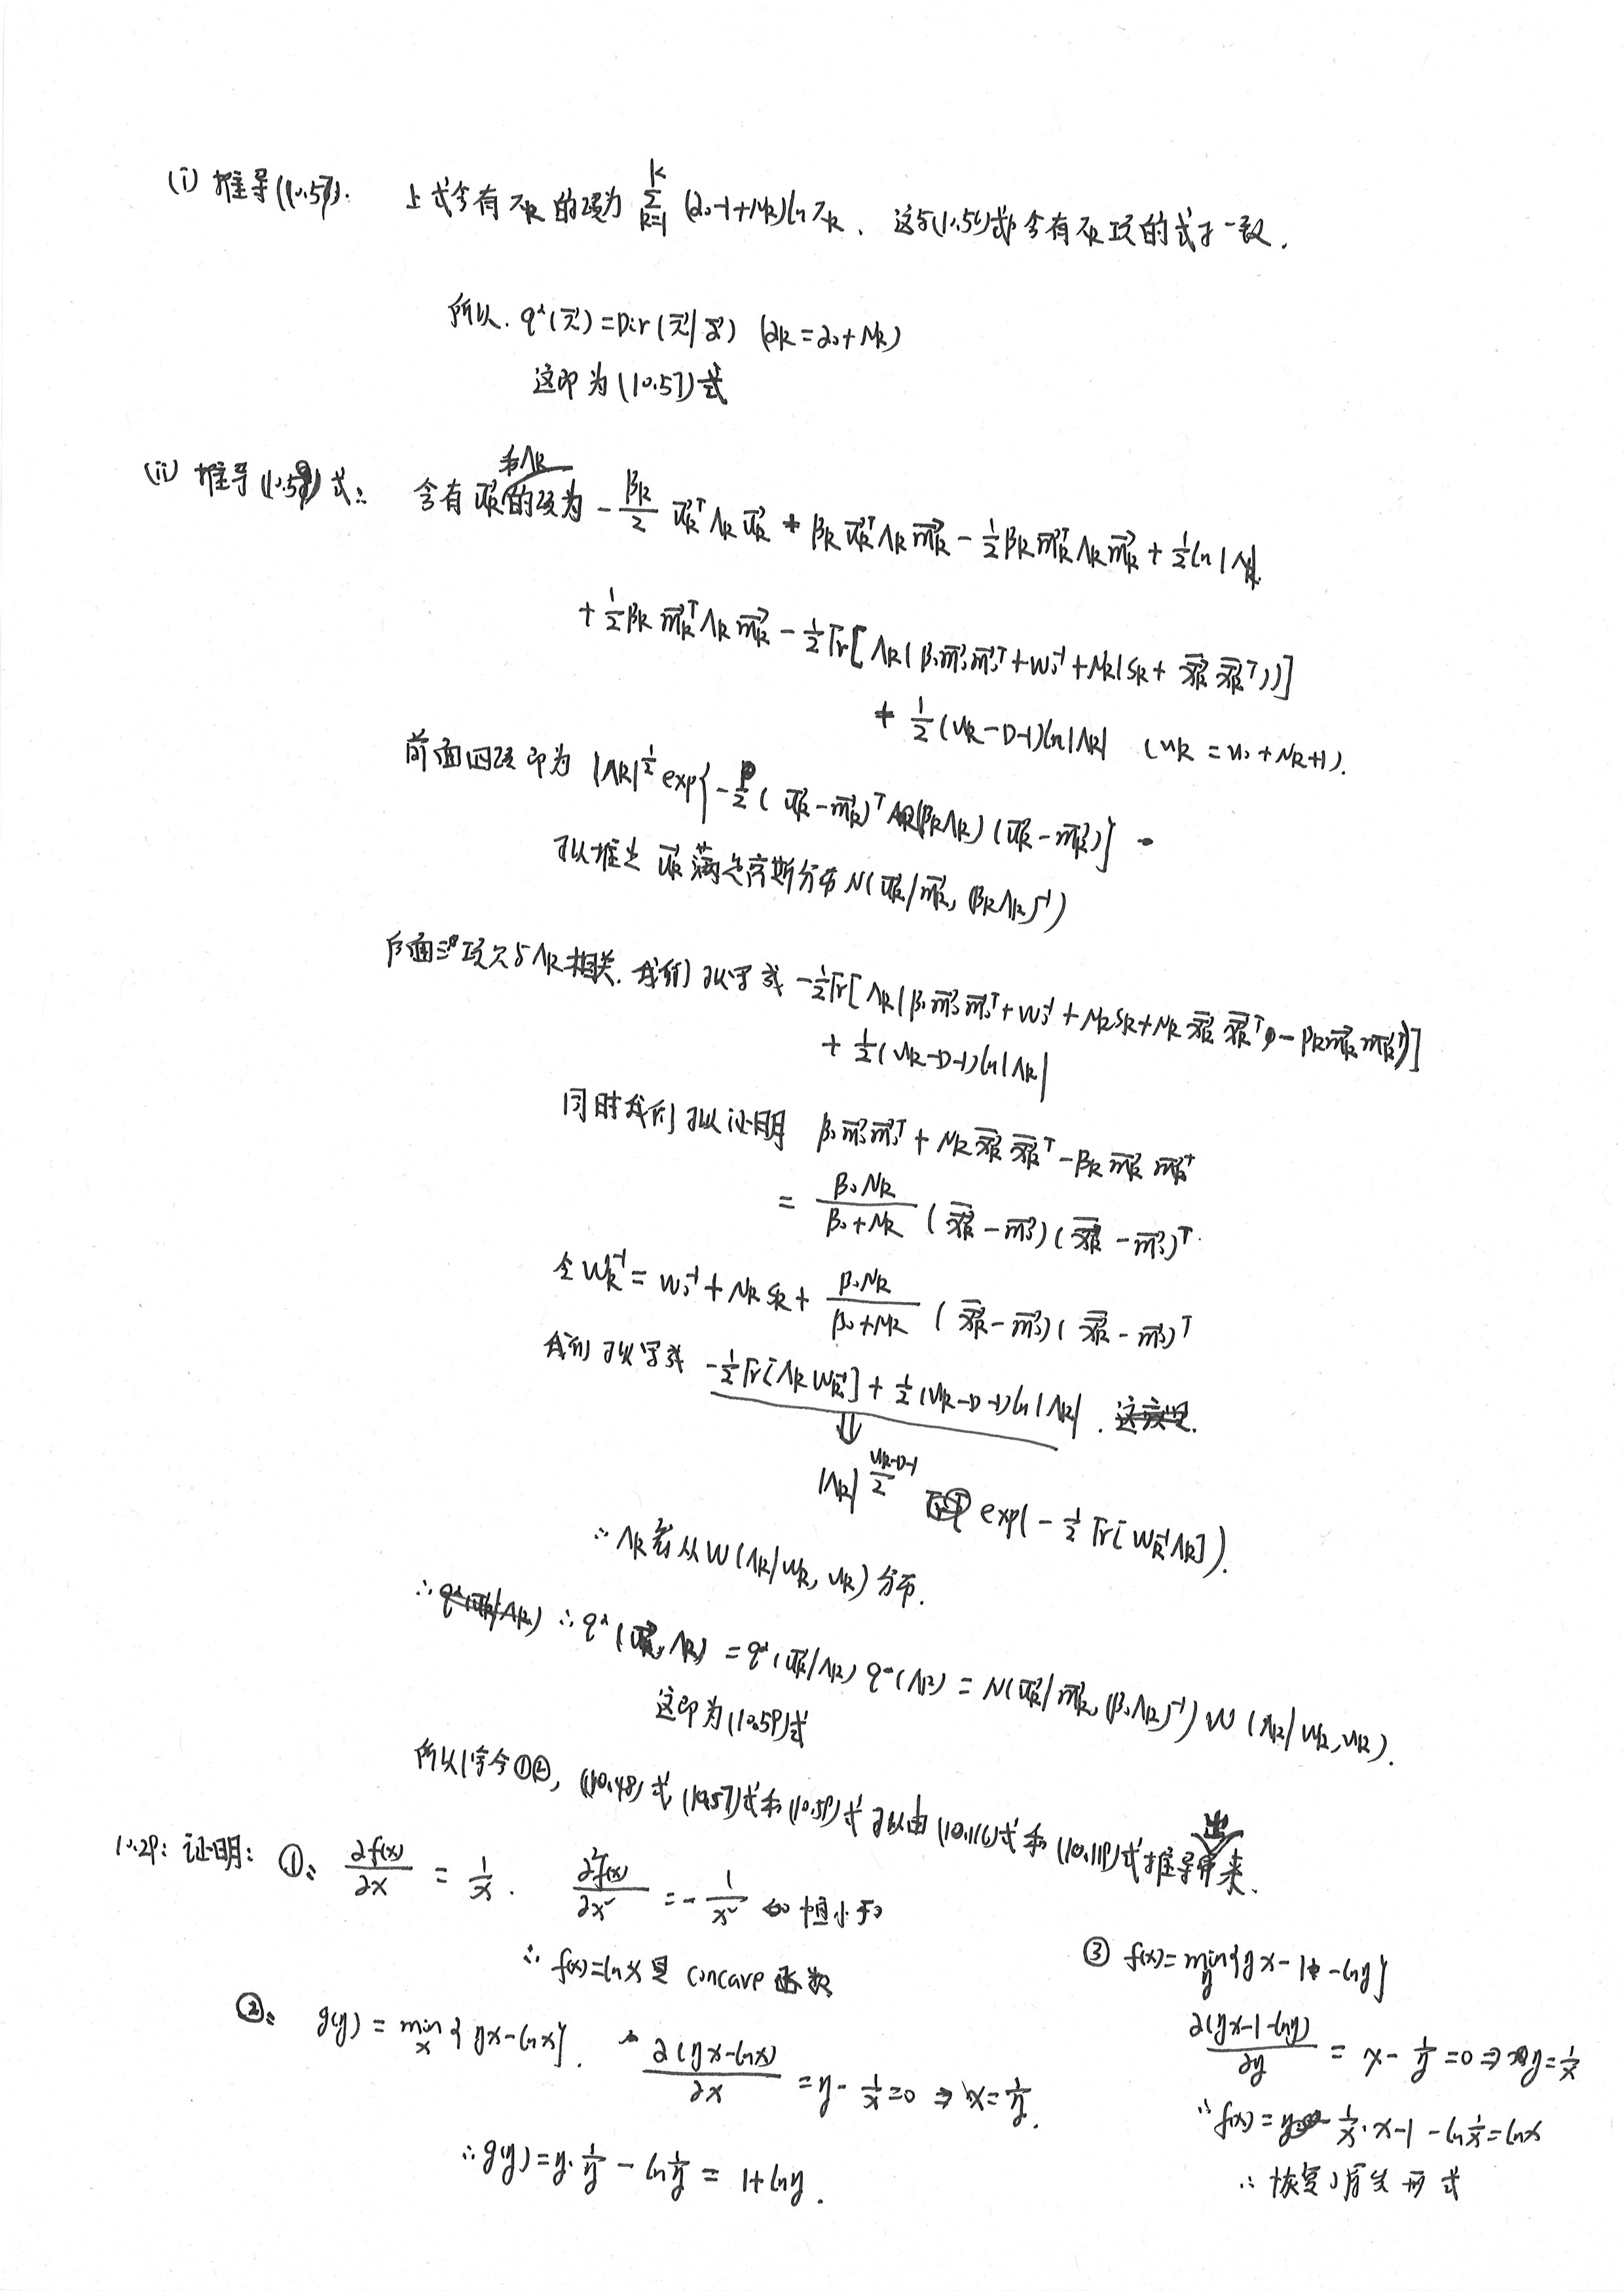 (i) 推导(10.57). 上式含有 πk 的项为 Σ_{k=1}^{K} (α₀-1+Nk) ln πk. 这与(10.56)式含有 πk 项的式子一致.
所以. q*(π⃗) = Dir(π⃗|α⃗) (αk = α₀+Nk)
这即为(10.57)式
(ii) 推导(10.59)式: 含有 μ⃗k 和Λk 的项为 -βk/2 μ⃗kᵀ Λk μ⃗k + βk μ⃗kᵀ Λk m⃗k - ½ βk m⃗kᵀ Λk m⃗k + ½ ln|Λk|
+ ½ βk m⃗kᵀ Λk m⃗k - ½ Tr[Λk(β₀ m⃗₀ m⃗₀ᵀ + W₀⁻¹ + Nk(Sk + x̄k x̄kᵀ))]
+ ½ (νk-D-1) ln|Λk| (νk = ν₀+Nk+1).
前面四项即为 |Λk|^{½} exp{-½ (μ⃗k - m⃗k)ᵀ (βkΛk) (μ⃗k - m⃗k)}
可以推出 μ⃗k 满足高斯分布 N(μ⃗k|m⃗k, (βkΛk)⁻¹)
后面三项只与Λk相关. 我们可以写成 -½ Tr[Λk(β₀ m⃗₀ m⃗₀ᵀ + W₀⁻¹ + NkSk + Nk x̄k x̄kᵀ - βk m⃗k m⃗kᵀ)]
+ ½ (νk-D-1) ln|Λk|
同时我们可以证明 β₀ m⃗₀ m⃗₀ᵀ + Nk x̄k x̄kᵀ - βk m⃗k m⃗kᵀ
= β₀Nk/(β₀+Nk) (x̄k - m⃗₀)(x̄k - m⃗₀)ᵀ.
令 Wk⁻¹ = W₀⁻¹ + NkSk + β₀Nk/(β₀+Nk) (x̄k - m⃗₀)(x̄k - m⃗₀)ᵀ
我们可以写成 -½ Tr[ΛkWk⁻¹] + ½ (νk-D-1) ln|Λk|.
⇓
|Λk|^{(νk-D-1)/2} exp(-½ Tr[Wk⁻¹Λk]).
∴ Λk 服从 W(Λk|Wk, νk) 分布.
∴ ∴ q*(μ⃗k, Λk) = q*(μ⃗k|Λk) q*(Λk) = N(μ⃗k|m⃗k, (βkΛk)⁻¹) W(Λk|Wk, νk).
这即为(10.59)式
所以综合①②, (10.48)式 (10.57)式和(10.59)式可以由(10.116)式和(10.119)式推导出来.
10.29: 证明: ①: ∂f(x)/∂x = 1/x. ∂²f(x)/∂x² = -1/x² 恒小于0
∴ f(x)=lnx 是 concave 函数
②: g(y) = min_x {yx-lnx}. ∂(yx-lnx)/∂x = y - 1/x = 0 ⇒ x = 1/y.
∴ g(y) = y·1/y - ln 1/y = 1+lny.
③ f(x) = min_y {yx-1-lny}
∂(yx-1-lny)/∂y = x - 1/y = 0 ⇒ y = 1/x
∴ f(x) = 1/x·x-1 - ln 1/x = lnx
∴ 恢复了原先形式